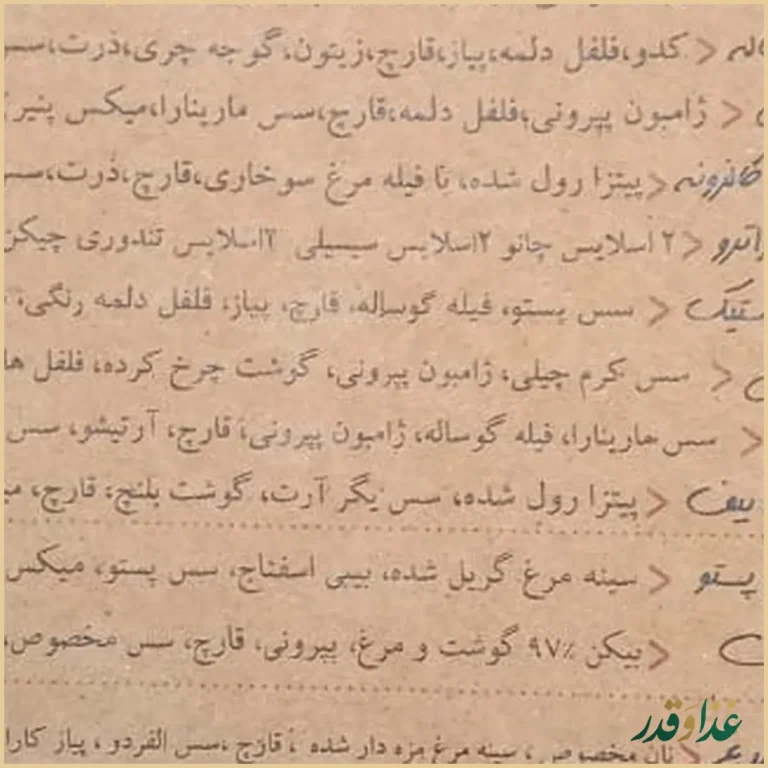 کدو،فلفل دلمه،پیاز،قارچ،زیتون،گوجه چری،ذرت،سس
ژامبون پپرونی،فلفل دلمه،قارچ،سس مارینارا،میکس پنیر
کالزونه > پیتزا رول شده، با فیله مرغ سوخاری،قارچ،ذرت،سس
۲ اسلایس چانو ۲اسلایس سیسیلی ۲اسلایس تندوری چیکن
سس پستو، فیله گوساله، قارچ، پیاز، فلفل دلمه رنگی،
سس کرم چیلی، ژامبون پپرونی، گوشت چرخ کرده، فلفل
سس مارینارا، فیله گوساله، ژامبون پپرونی، قارچ، آرتیشو، سس
بیف > پیتزا رول شده، سس یگر آرت، گوشت بلنچ، قارچ،
پستو > سینه مرغ گریل شده، بیبی اسفناج، سس پستو، میکس
بیکن ۹۷٪ گوشت و مرغ، پپرونی، قارچ، سس مخصوص،
نان مخصوص ، سینه مرغ مزه دار شده ، قارچ ،سس الفردو ، پیاز
غذا و قدر